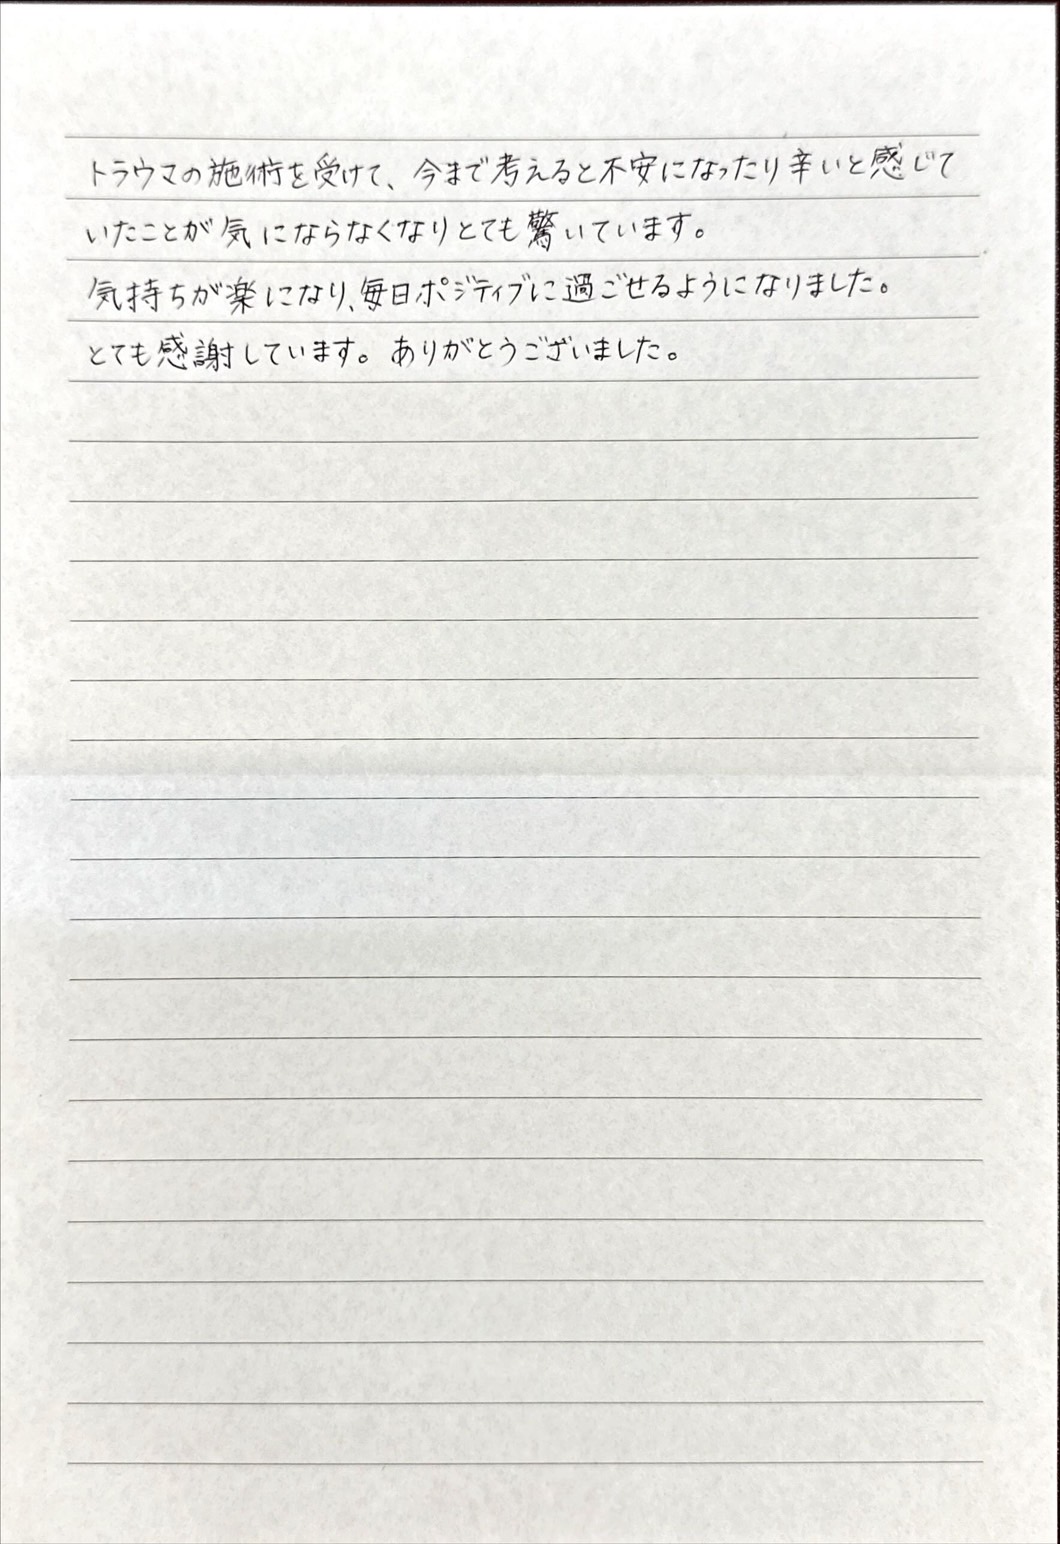 トラウマの施術を受けて、今まで考えると不安になったり辛いと感じて
いたことが気にならなくなりとても驚いています。
気持ちが楽になり、毎日ポジティブに過ごせるようになりました。
とても感謝しています。ありがとうございました。